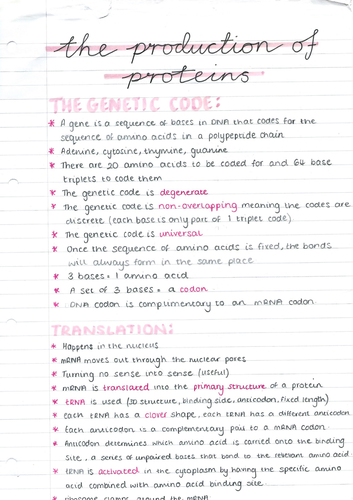 the production of
proteins
THE GENETIC CODE:
* A gene is a sequence of bases in DNA that codes for the
sequence of amino acids in a polypeptide chain
* Adenine, cytosine, thymine, guanine
* There are 20 amino acids to be coded for and 64 base
triplets to code them
* The genetic code is degenerate
* The genetic code is non-overlapping meaning the codes are
discrete (each base is only part of 1 triplet code)
* The genetic code is universal
* Once the sequence of amino acids is fixed, the bonds
will always form in the same place
* 3 bases = 1 amino acid
* A set of 3 bases = a codon
* DNA codon is complimentary to an mRNA codon
TRANSLATION:
* Happens in the nucleus
* mRNA moves out through the nuclear pores
* Turning no sense into sense (useful)
* mRNA is translated into the primary structure of a protein
* tRNA is used (3D structure, binding side, anticodon, fixed length)
* Each tRNA has a clover shape, each tRNA has a different anticodon
* Each anticodon is a complementary pair to a mRNA codon
* Anticodon determines which amino acid is carried onto the binding
site, a series of unpaired bases that bond to the relevant amino acid
* tRNA is activated in the cytoplasm by having the specific amino
acid combined with amino acid binding site
* ribosome clamps around the mRNA